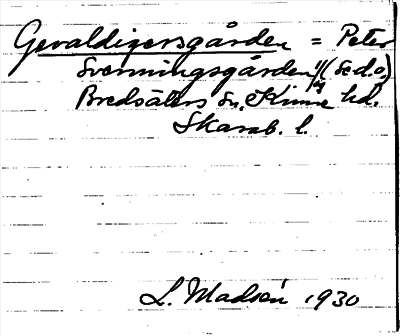 Gevaldigersgården = Peter
Svenningsgården (se d. o.)
Bredsäters sn, Kinne hd.
Skarab. l.
L. Madsén 1930